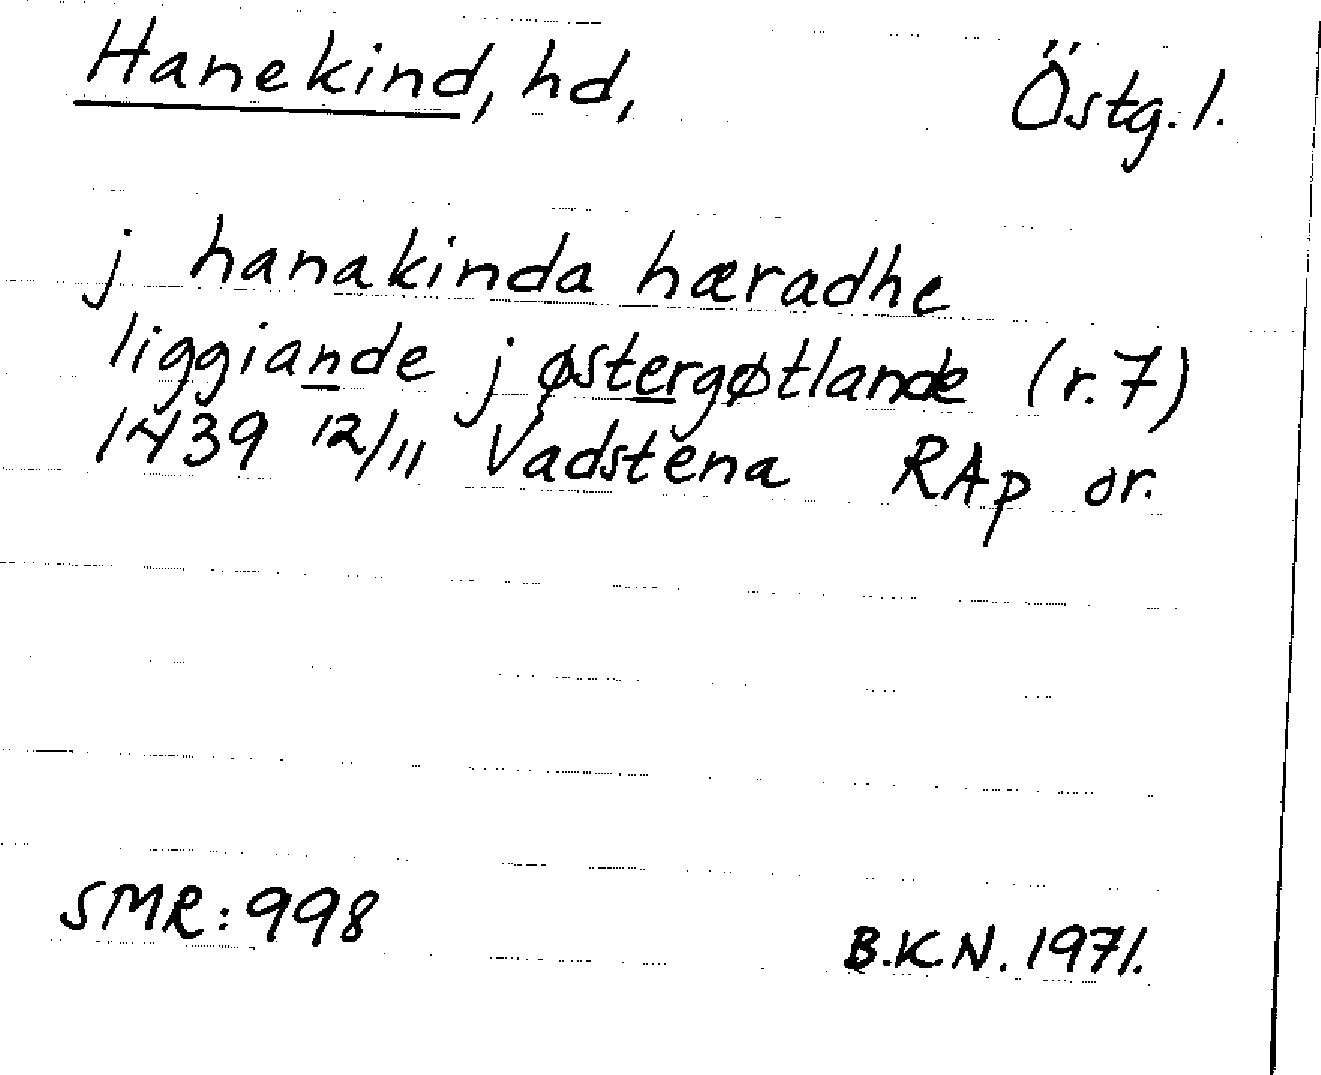 Hanekind, hd, Östg. l.
j hanakinda hæradhe
liggiande j østergøtlande (r. 7)
1439 12/11 Vadstena RAp or.
SMR: 998 B.K.N. 1971.